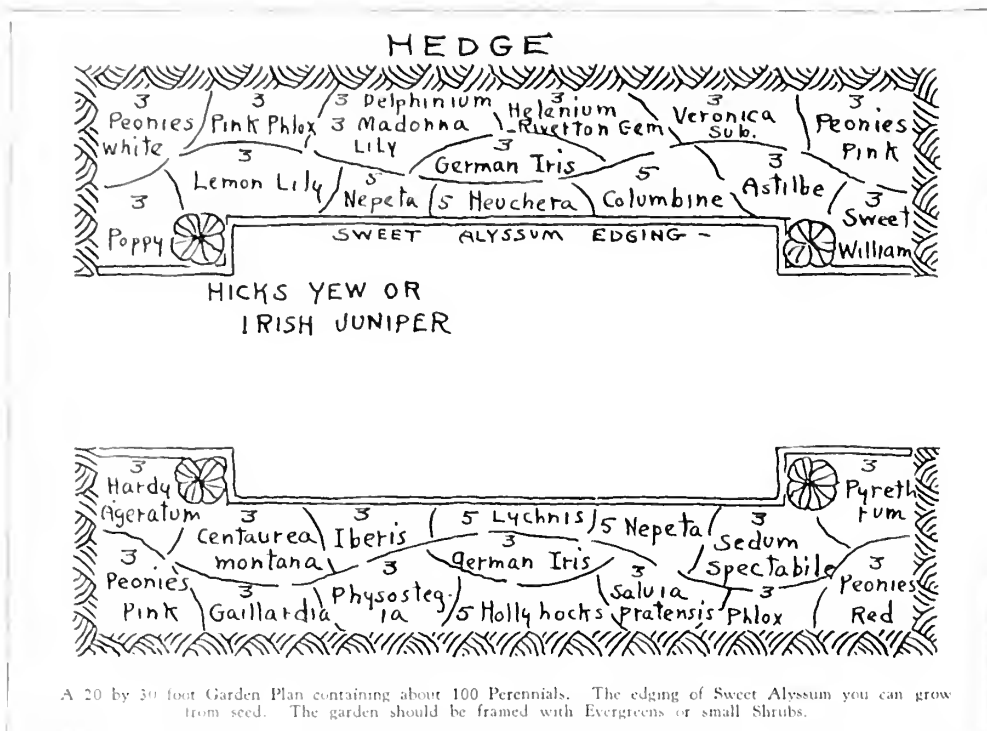 HEDGE
3 Peonies white
3 Pink Phlox
3 Delphinium
3 Madonna Lily
3 Helenium
-Riverton Gem
3 Veronica Sub.
3 Peonies Pink
3 Lemon Lily
3 German Iris
3 Poppy
5 Nepeta
5 Heuchera
5 Columbine
3 Astilbe
3 Sweet William
SWEET ALYSSUM EDGING -
HICKS YEW OR
IRISH JUNIPER
3 Hardy Ageratum
3 Centaurea montana
3 Iberis
5 Lychnis
5 Nepeta
3 Sedum Spectabile
3 Pyreth rum
3 Peonies Pink
3 Gaillardia
3 Physosteg- ia
3 German Iris
5 Hollyhocks
3 Salvia pratensis
3 Phlox
3 Peonies Red
A 20 by 30 foot Garden Plan containing about 100 Perennials. The edging of Sweet Alyssum you can grow
from seed. The garden should be framed with Evergreens or small Shrubs.